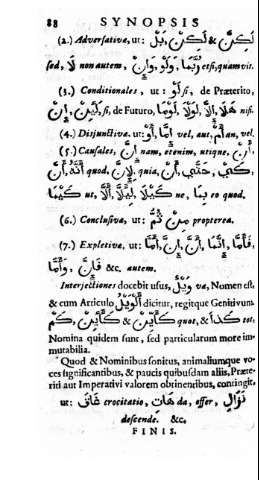 88 SYNOPSIS
(2.) Adversativæ, ut: بَلْ, لٰكِنْ & لٰكِنَّ
sed, لَا non autem, وَإِنْ, وَلَوْ, رُبَّمَا etsi, quamvis.
(3.) Conditionales, ut: لَوْ si, de Præterito,
إِنْ, لَئِنْ, si, de Futuro, لَوْمَا, لَوْلَا, هَلَّا nisi.
(4.) Disjunctivæ. ut: أَوْ, أَمَّا vel, aut, أَمْ an, vel.
(5.) Causales, إِنَّ nam, etenim, utique.
أَنَّ quod, quia, حَتَّي, كَي,
ut, ne بِمَا, eo quod.
(6.) Conclusivæ, ut: مِنْ ثُمَّ propterea.
(7.) Expletivæ, ut: أَمَّا, إِنَّ, أَنَّ, إِنَّمَا, فَأَمَّا,
وَأَمَّا, فَإِنَّ &c. autem.
Interjectiones docebit usus, وَيْلٌ væ, Nomen est,
& cum Articulo أَلْوَيْلُ dicitur, regitque Genitivum
كَمْ, كَأَيِّنْ & quot, & كَذَا tot
Nomina quidem sunt, sed particularum more im-
mutabilia.
Quod & Nominibus sonitus, animaliumque vo-
ces significantibus, & paucis quibusdam aliis, Præte-
riti aut Imperativi valorem obtinentibus, contingit,
ut: غَاقِ crocitatio, هَاتِ da, offer, نَزَالِ
descende. &c.
FINIS.